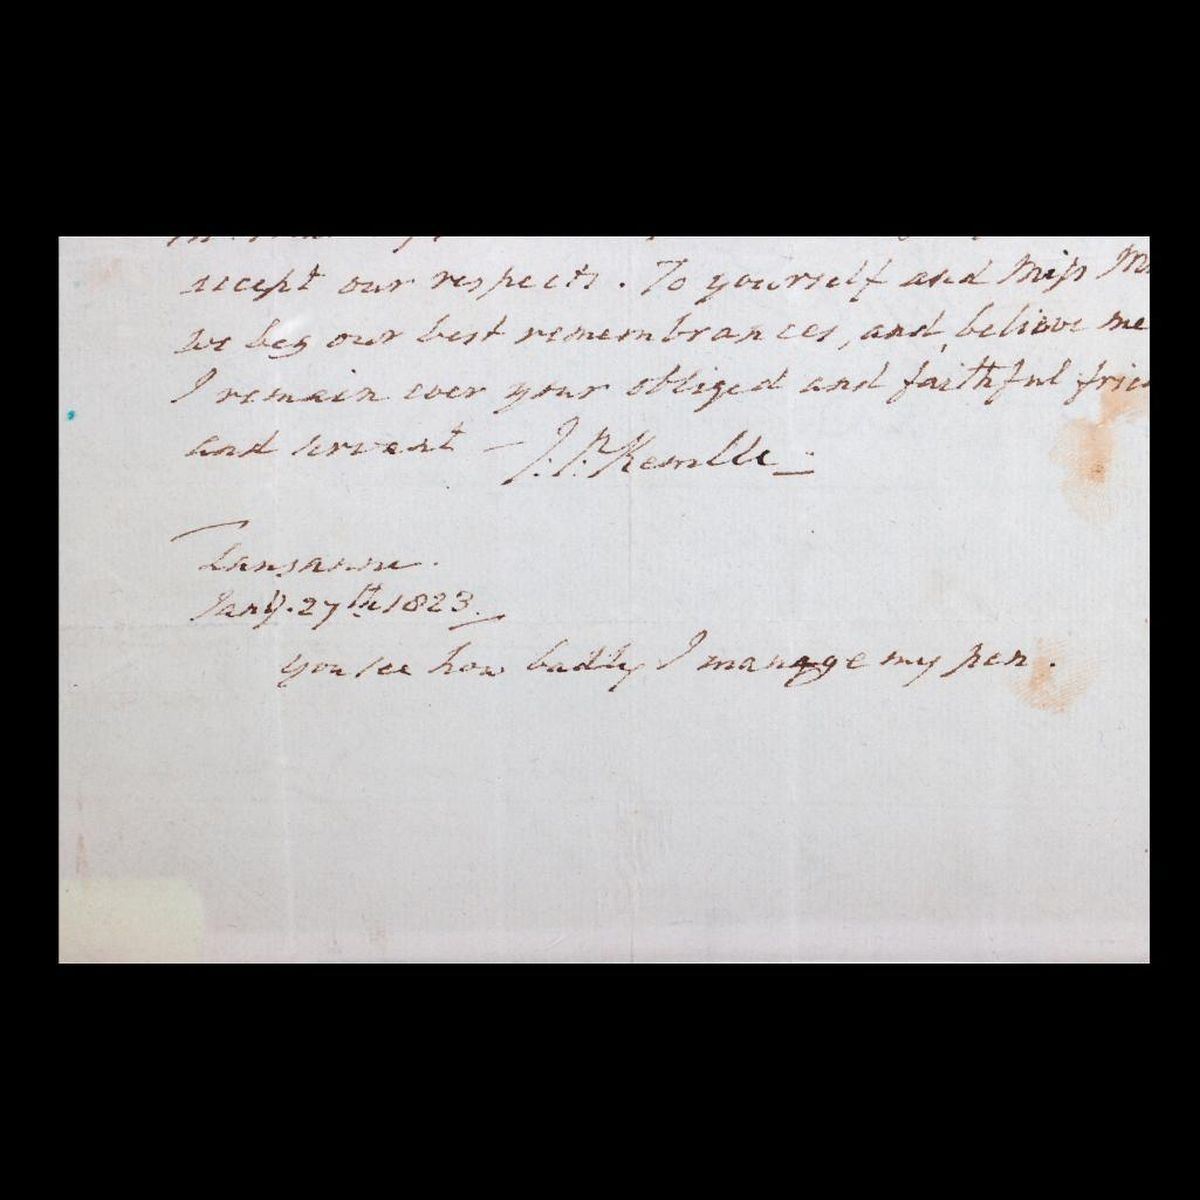 accept our respects. To yourself and Miss
we beg our best remembrances, and believe me
I remain ever your obliged and faithful
and servant — J. P. Kemble —
Lausanne.
Jany. 27th 1823.
You see how badly I manage my pen.